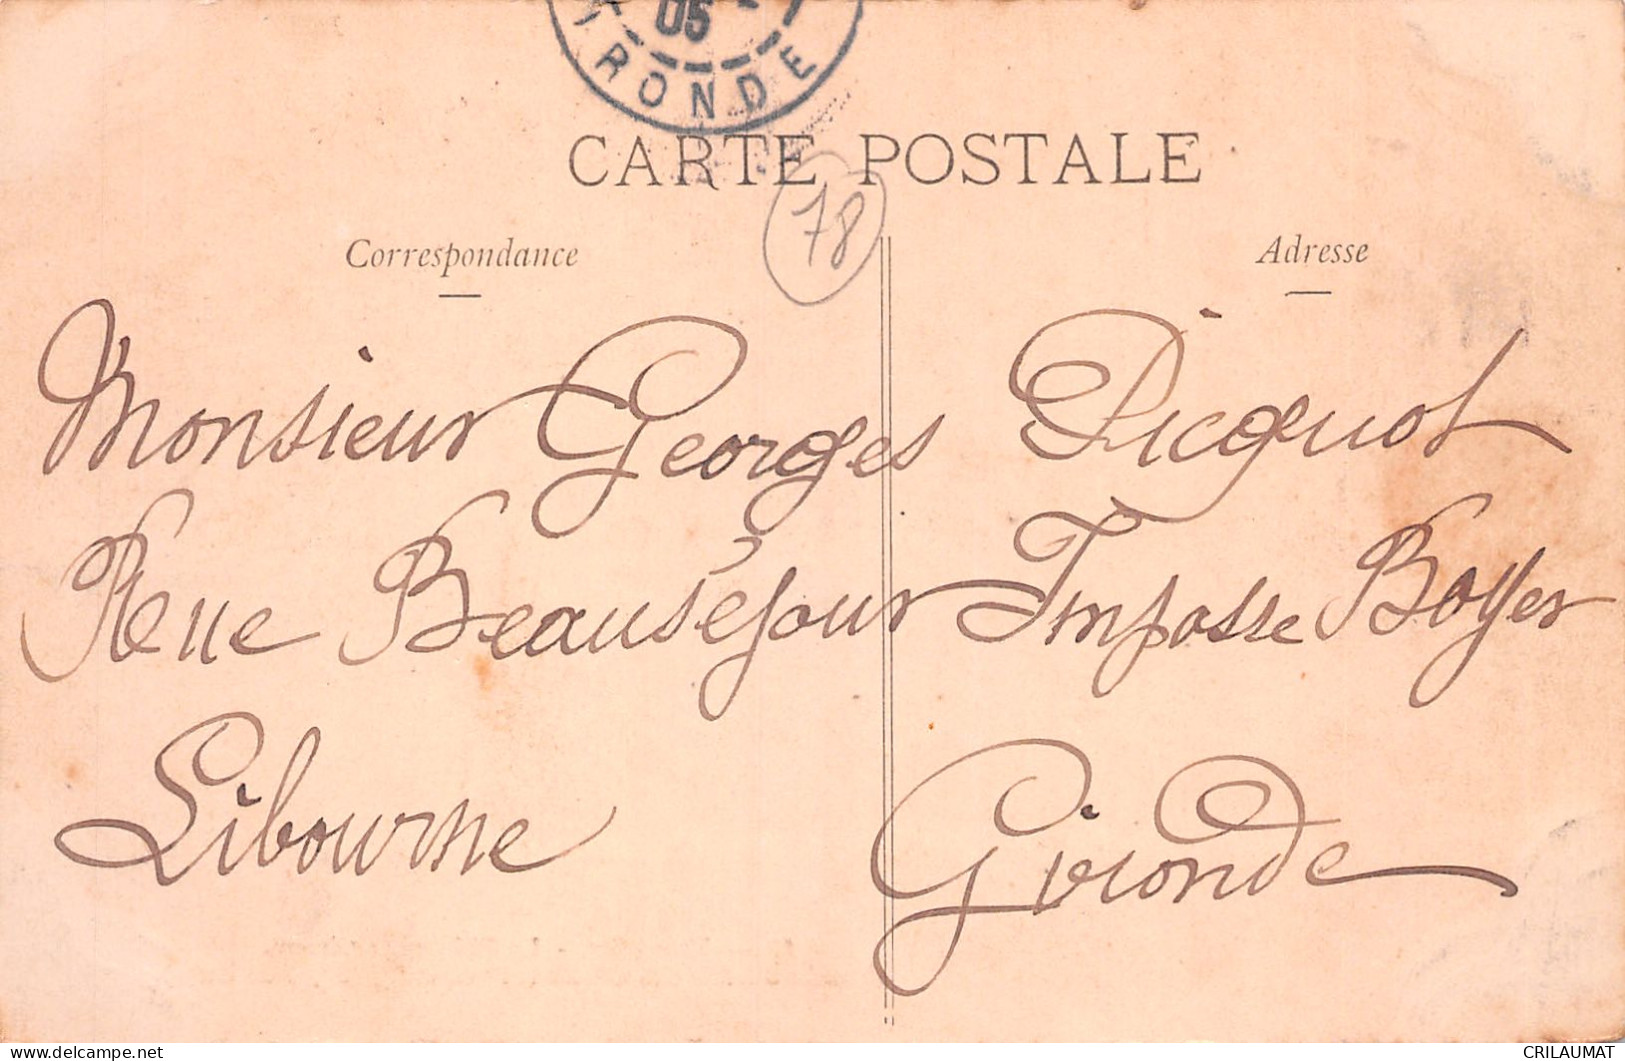 05
IRONDE
CARTE POSTALE
78
Correspondance
Adresse
Monsieur Georges Picquot
Rue Beauséjour Impasse Boyer
Libourne Gironde
delcampe.net
CRILAUMAT